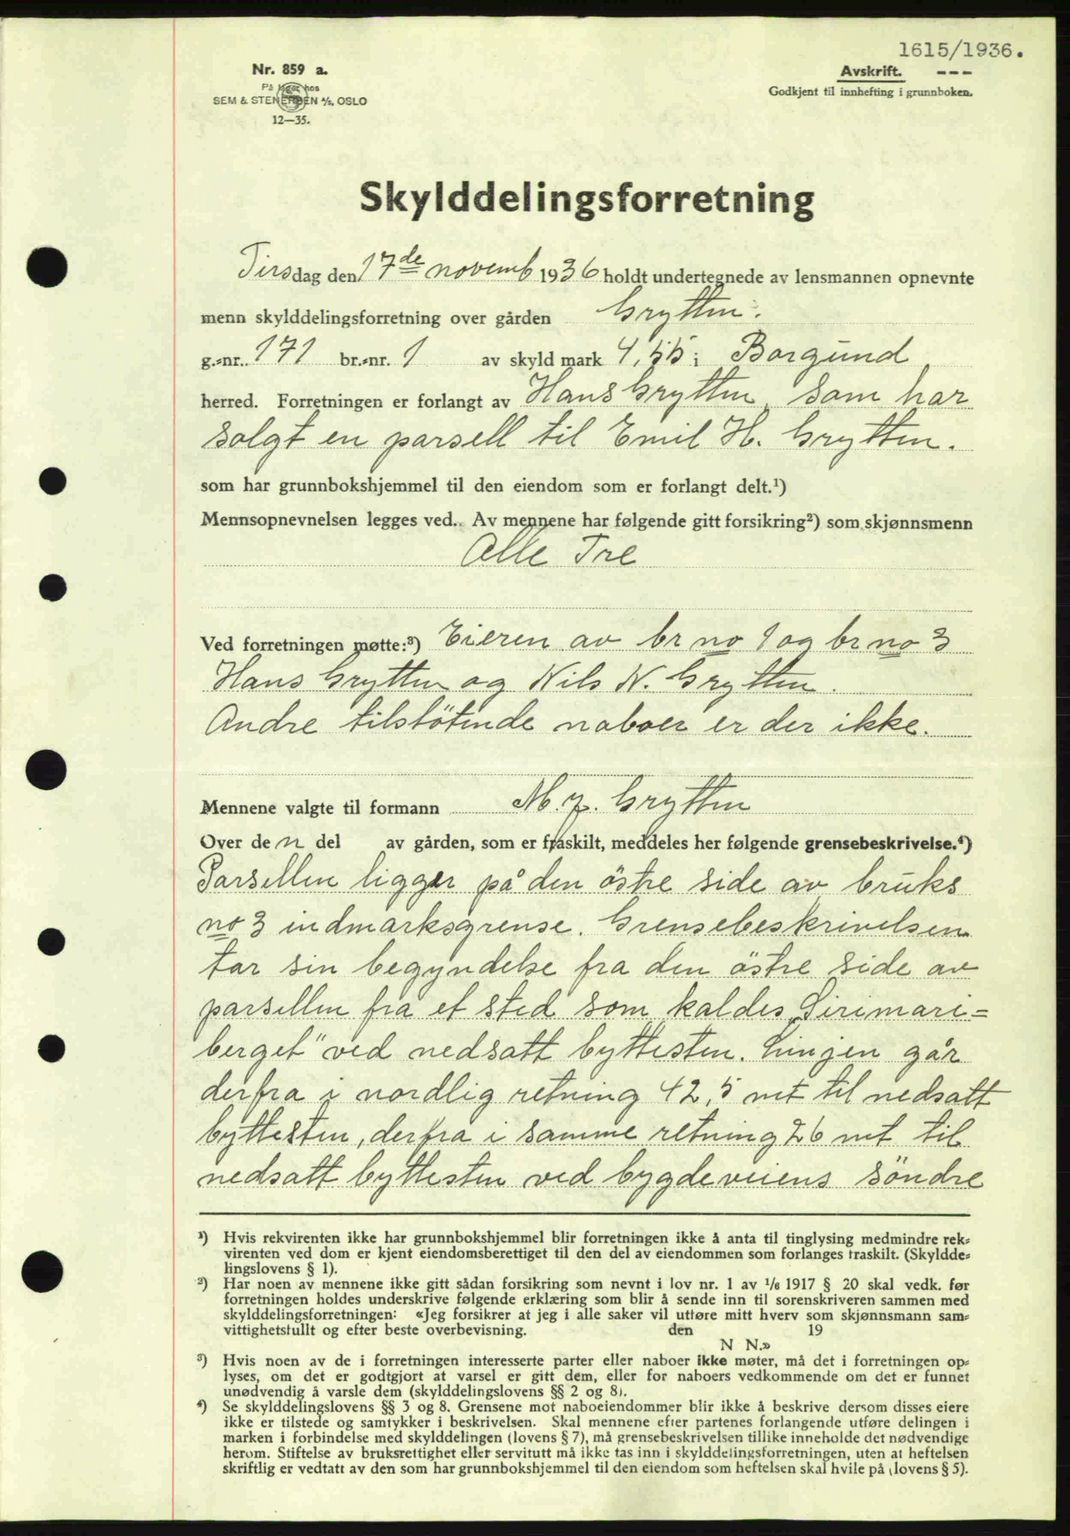 1615/1936.
Nr. 859 a.
På lager hos
SEM & STENERSEN A/S, OSLO
12—35.
Avskrift. ---
Godkjent til innhefting i grunnboken.
Skylddelingsforretning
Tirsdag den 17de novemb 1936 holdt undertegnede av lensmannen opnevnte
menn skylddelingsforretning over gården Grytten.
g.-nr. 171 br.-nr. 1 av skyld mark 4,55 i Borgund
herred. Forretningen er forlangt av Hans Grytten, som har
solgt en parsell til Emil H. Grytten.
som har grunnbokshjemmel til den eiendom som er forlangt delt.¹)
Mennsopnevnelsen legges ved. Av mennene har følgende gitt forsikring²) som skjønnsmenn
Alle Tre
Ved forretningen møtte:³) Eieren av br no 1 og br no 3
Hans Grytten og Nils N. Grytten.
Andre tilstötende naboer er der ikke.
Mennene valgte til formann M. J. Grytten
Over den del av gården, som er fraskilt, meddeles her følgende grensebeskrivelse.⁴)
Parsellen ligger på den östre side av bruks
no 3 indmarksgrense. Grensebeskrivelsen
tar sin begyndelse fra den östre side av
parsellen fra et sted som kaldes „Sirimari=
berget" ved nedsatt byttesten. Linjen går
derfra i nordlig retning 42,5 mt til nedsatt
byttesten, derfra i samme retning 26 mt til
nedsatt byttesten ved bygdeveiens söndre
¹) Hvis rekvirenten ikke har grunnbokshjemmel blir forretningen ikke å anta til tinglysing medmindre rek-
virenten ved dom er kjent eiendomsberettiget til den del av eiendommen som forlanges fraskilt. (Skyldde-
lingslovens § 1).
²) Har noen av mennene ikke gitt sådan forsikring som nevnt i lov nr. 1 av 1/6 1917 § 20 skal vedk. før
forretningen holdes underskrive følgende erklæring som blir å sende inn til sorenskriveren sammen med
skylddelingsforretningen: «Jeg forsikrer at jeg i alle saker vil utføre mitt hverv som skjønnsmann sam-
vittighetsfullt og efter beste overbevisning. den 19
N N.»
³) Hvis noen av de i forretningen interesserte parter eller naboer ikke møter, må det i forretningen op-
lyses, om det er godtgjort at varsel er gitt dem, eller for naboers vedkommende om det er funnet
unødvendig å varsle dem (skylddelingslovens §§ 2 og 8).
⁴) Se skylddelingslovens §§ 3 og 8. Grensene mot naboeiendommer blir ikke å beskrive dersom disses eiere
ikke er tilstede og samtykker i beskrivelsen. Skal mennene efter partenes forlangende utføre delingen i
marken i forbindelse med skylddelingen (lovens § 7), må grensebeskrivelsen tillike inneholde det nødvendige
herom. Stiftelse av bruksrettighet eller servitutt må ikke tas inn i skylddelingsforretningen, uten at heftelsen
skriftlig er vedtatt av den som har grunnbokshjemmel til den eiendom som heftelsen skal hvile på (lovens § 5).